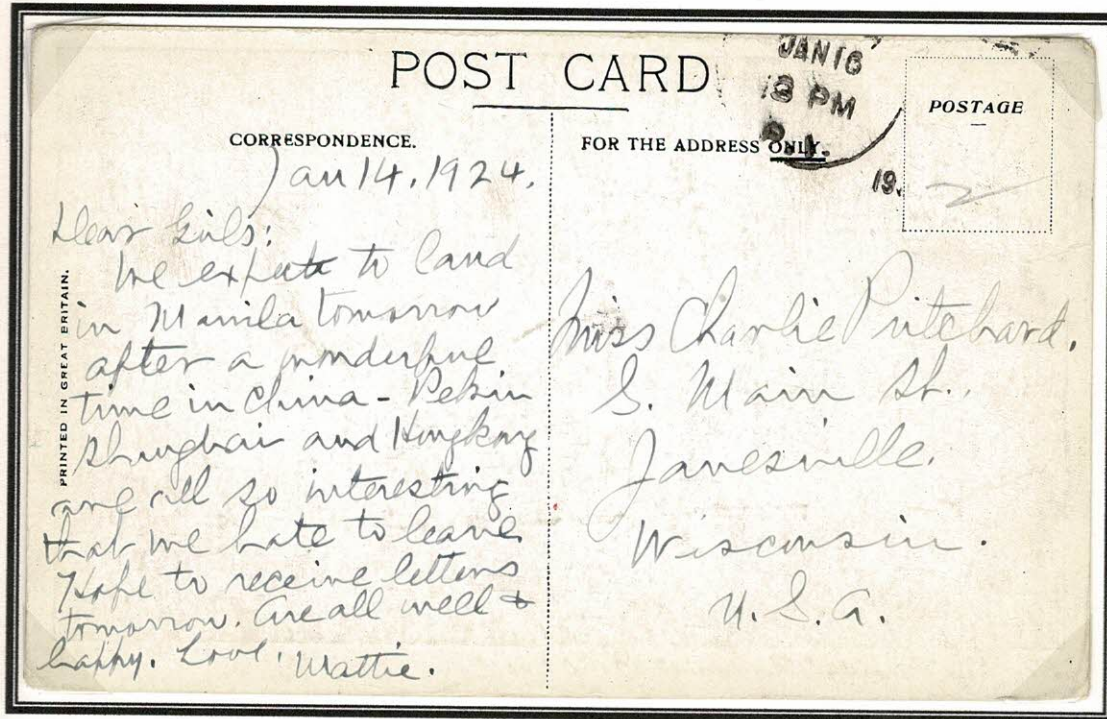 POST CARD
JAN 16
3 PM
P.I.
19
POSTAGE
CORRESPONDENCE.
FOR THE ADDRESS ONLY.
PRINTED IN GREAT BRITAIN.
Jan 14. 1924.
Dear Girls:
We expect to land
in Manila tomorrow
after a wonderful
time in China - Pekin
Shanghai and Hongkong
are all so interesting
that we hate to leave.
Hope to receive letters
tomorrow. Are all well +
happy. Love, Mattie.
Miss Charlie Pritchard.
S. Main St.
Janesville.
Wisconsin.
U.S.A.